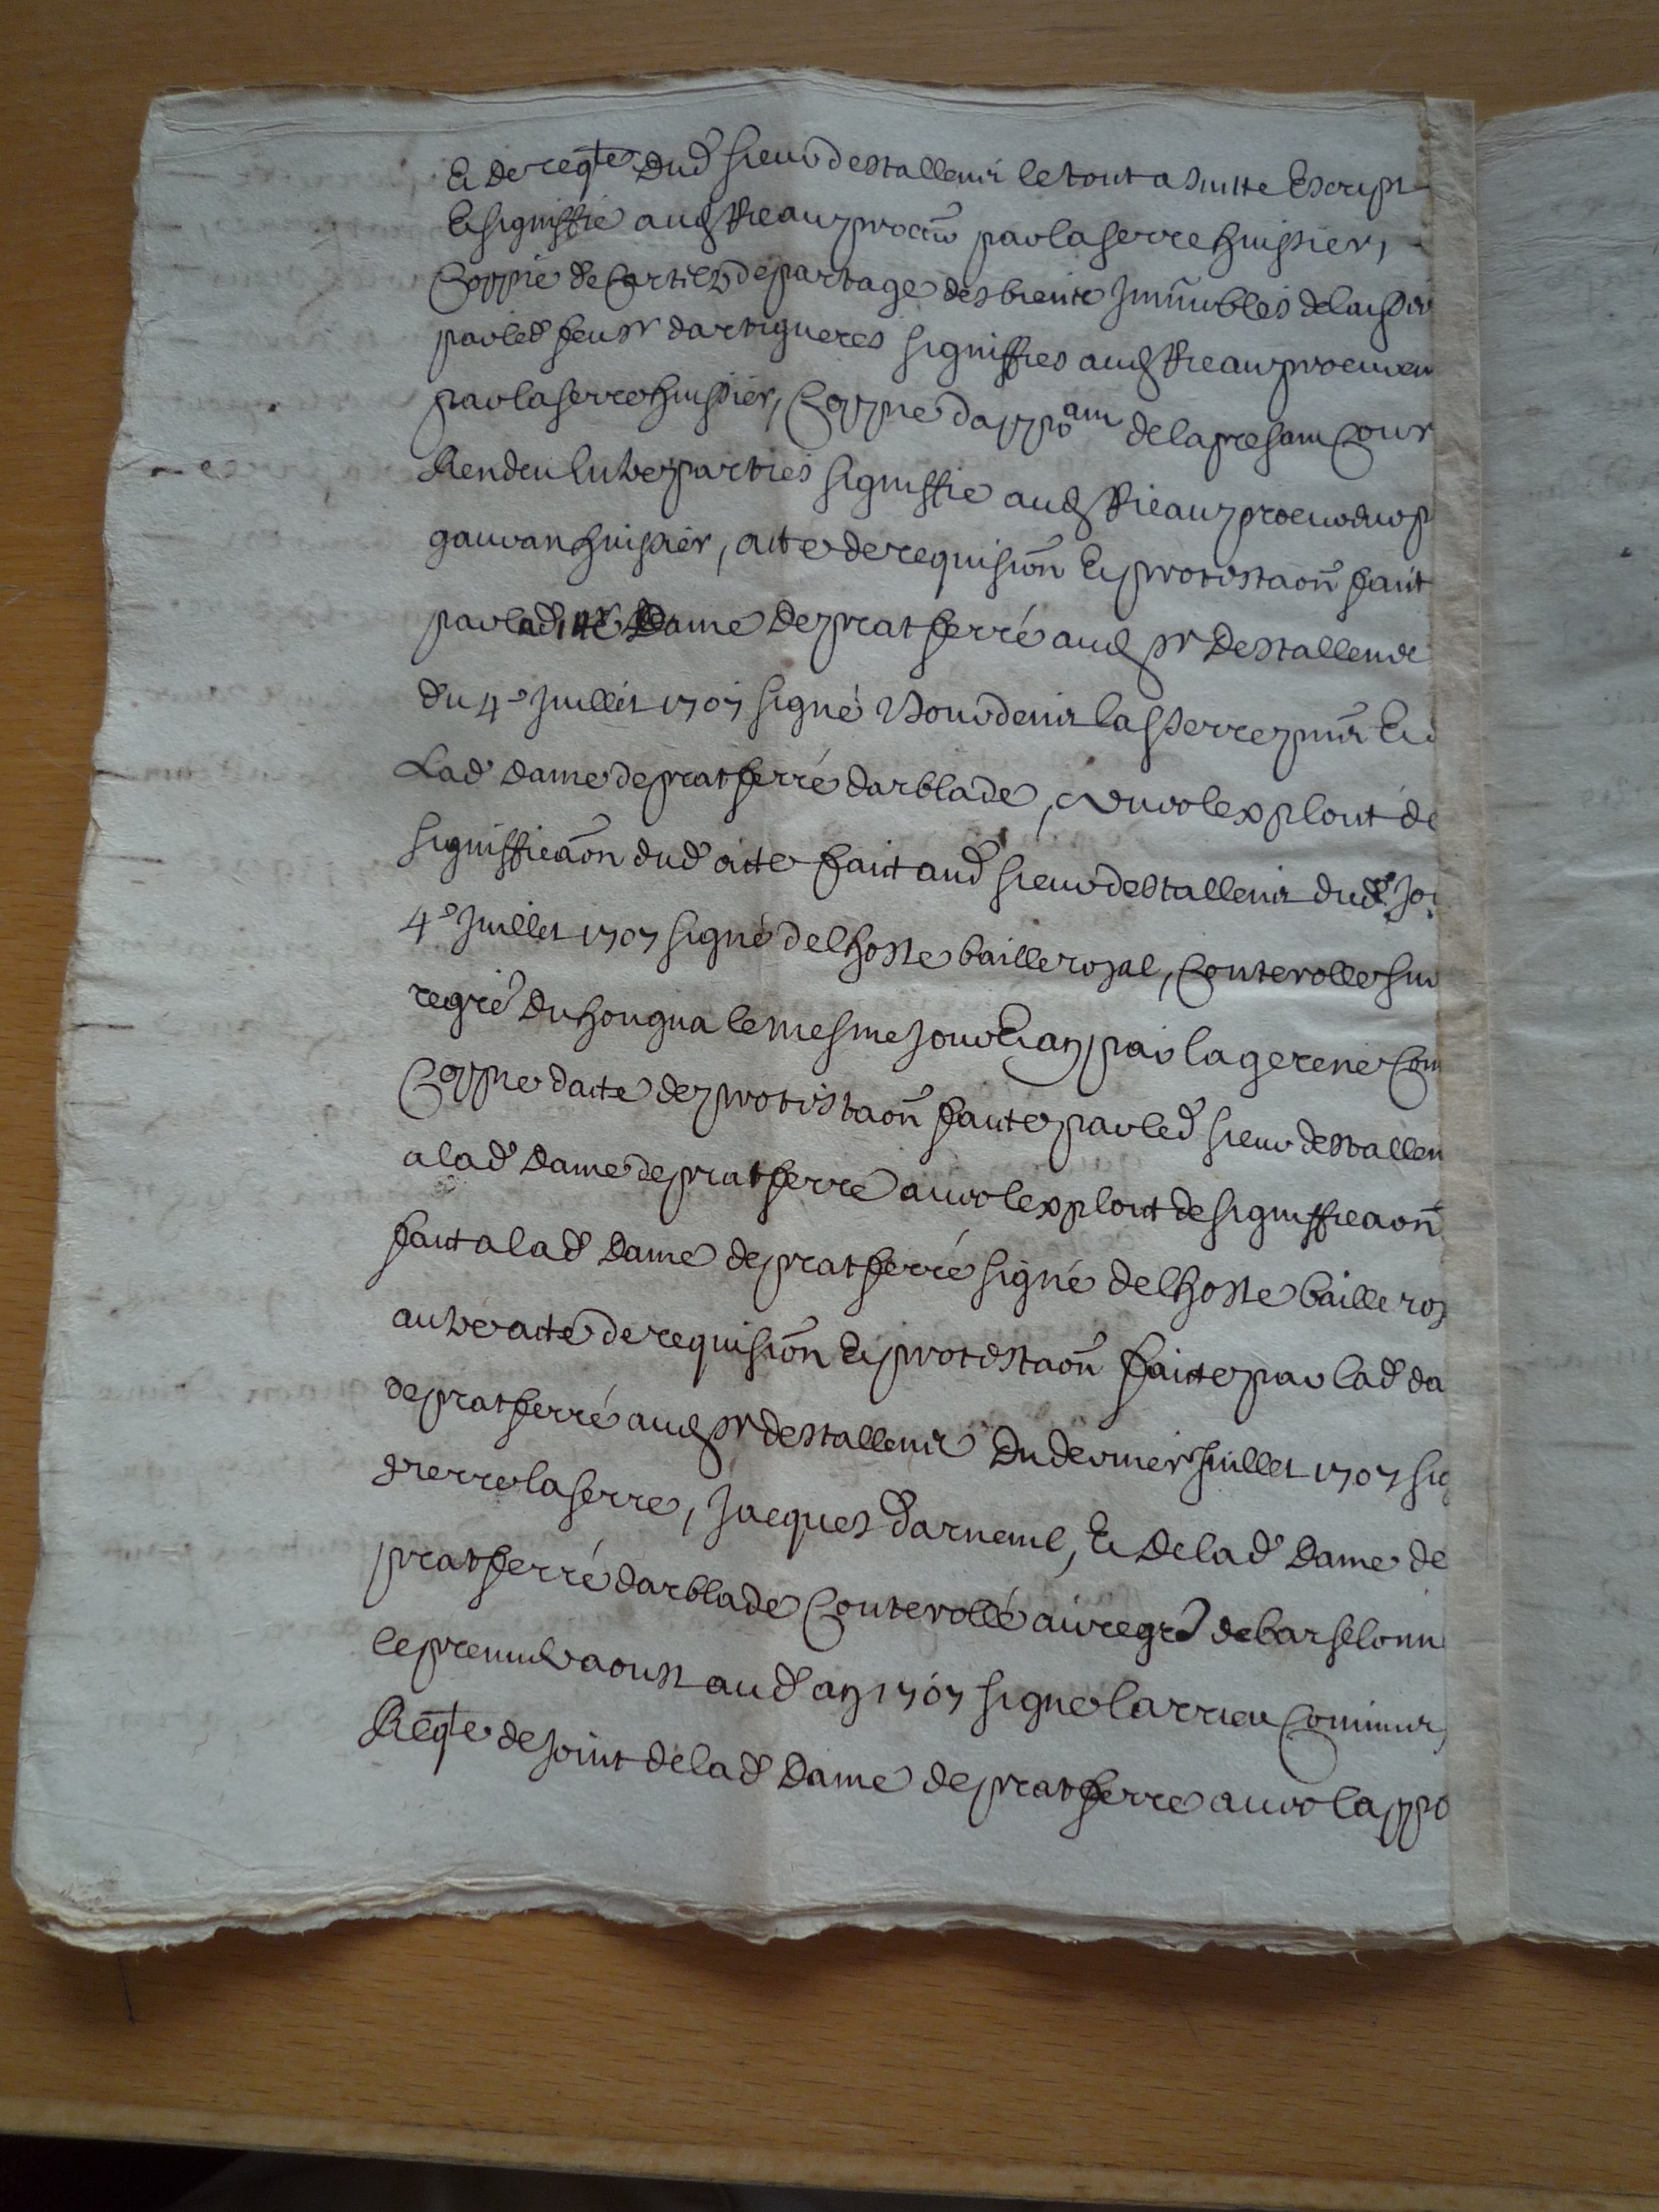 Et de reqte dud sieur destallenx le tout a suitte Escript
Et signiffié aud Rieau procur par laserre huissier,
Coppie de Cartier de partage des biens Immubles delaisses
par led feu sr dartigueres signiffies aud Rieau procureur
par laserre huissier, Coppie dappoam de la presant Cour
Rendeu Entre parties signiffie aud Rieau procureur p
gauvan huissier, acte de requision Et protestaon fait
par lad Dame de pratferré aud sr Destallenx
du 4e Juillet 1707 signé lasserre pnt Et
Lad Dame de pratferré darblade, avec lexploit de
signiffieaon dud acte fait aud sieur destallenx dud Jo
4e Juillet 1707 signé delhoste baille royal, Conterolle sur
regre du hougua le mesme Jour Et an par lagerene Com
Coppie dacte de protestaon faite par led sieur destallen
a lad Dame de pratferre avec lexploit de signiffieaon
fait a lad Dame de pratferré signé delhoste baille roy
autre acte de requision Et protestaon faitte par lad da
de pratferré aud sr destallenx Du dernier Juillet 1707 sig
pierre laserre, Jacques darneuil, Et De lad Dame de
pratferré darblade Conterollé au regre de barselonn
le premier aoust aud an 1707 signé larrieu Commir,
Reqte de joint de lad Dame de pratferre avec lappo